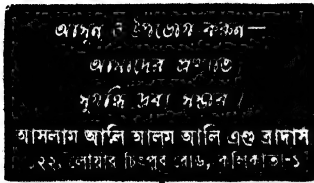 আসুন ও উপভোগ করুন—
আমাদের প্রখ্যাত
সুগন্ধি দ্রব্য সম্ভার।
আসলাম আলি আলম আলি এণ্ড ব্রাদার্স
২২, লোয়ার চিৎপুর রোড, কলিকাতা-১